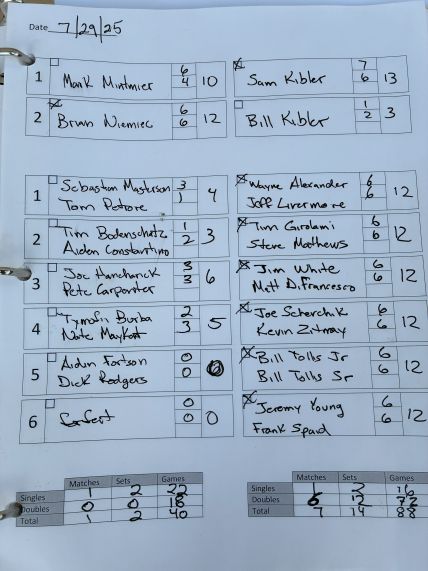 Date 7/29/25
1 Mark Mintmier 6 4 10 Sam Kibler 7 6 13
2 Brian Niemiec 6 6 12 Bill Kibler 1 2 3
1 Sebastian Masterson 3 1 4 Wayne Alexander 6 6 12
Tom Petrore Jeff Livermore
2 Tim Bodenschatz 1 2 3 Tim Girolami 6 6 12
Aidan Constantino Steve Matthews
3 Joe Hancharick 3 3 6 Jim White 6 6 12
Pete Carpenter Matt DiFrancesco
4 Tymofii Burba 2 3 5 Joe Scherchik 6 6 12
Nate Kevin Zitnay
5 Aidan Fortson 0 0 0 Bill Tolls Jr 6 6 12
Dick Rodgers Bill Tolls Sr
6 0 0 0 Jeremy Young 6 6 12
Frank Spaid
Matches Sets Games Matches Sets Games
Singles 1 2 22 Singles 1 2 16
Doubles 0 0 18 Doubles 6 12 72
Total 1 2 40 Total 7 14 88